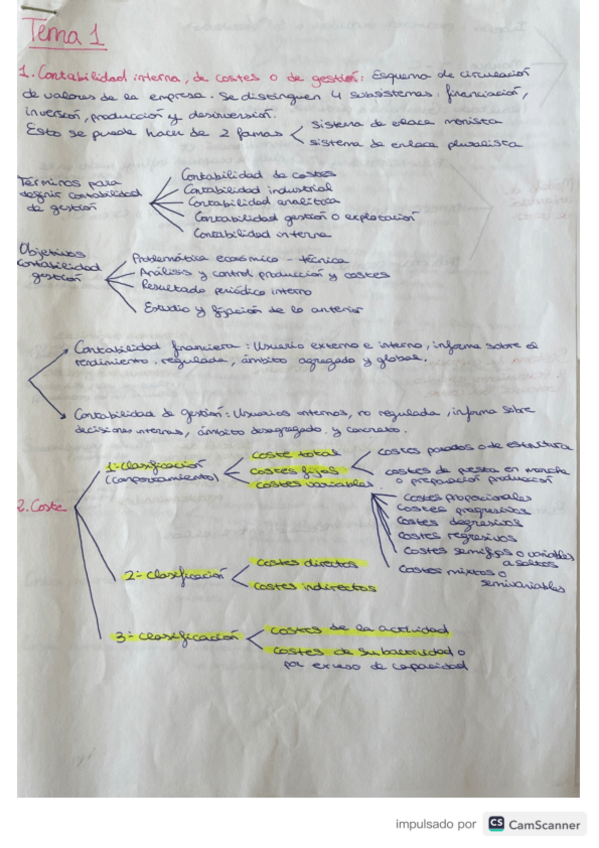 Tema 1
1. Contabilidad interna, de costes o de gestión: Esquema de circulación
de valores de la empresa. Se distinguen 4 subsistemas: financiación,
inversión, producción y desinversión.
Esto se puede hacer de 2 formas
sistema de enlace monista
sistema de enlace pluralista
Términos para
definir contabilidad
de gestión
Contabilidad de costes
Contabilidad industrial
Contabilidad analítica
Contabilidad gestión o explotación
Contabilidad interna
Objetivos
contabilidad
gestión
Problemática económico - técnica
Análisis y control producción y costes
Resultado periódico interno
Estudio y fijación de lo anterior
Contabilidad financiera: Usuario externo e interno, informa sobre el
rendimiento, regulada, ámbito agregado y global.
Contabilidad de Gestión: Usuarios internos, no regulada, informa sobre
decisiones internas, ámbito desagregado y concreto.
2. Coste
1ª clasificación
(comportamiento)
Coste total
Costes fijos
Costes variables
costes parados o de estructura
costes de puesta en marcha
o preparación producción
Costes proporcionales
Costes progresivos
Costes degresivos
Costes regresivos
Costes semifijos o variables
a saltos
Costes mixtos o
semivariables
2ª clasificación
Costes directos
Costes indirectos
3ª clasificación
Costes de la actividad
Costes de subactividad o
por exceso de capacidad
impulsado por CS CamScanner